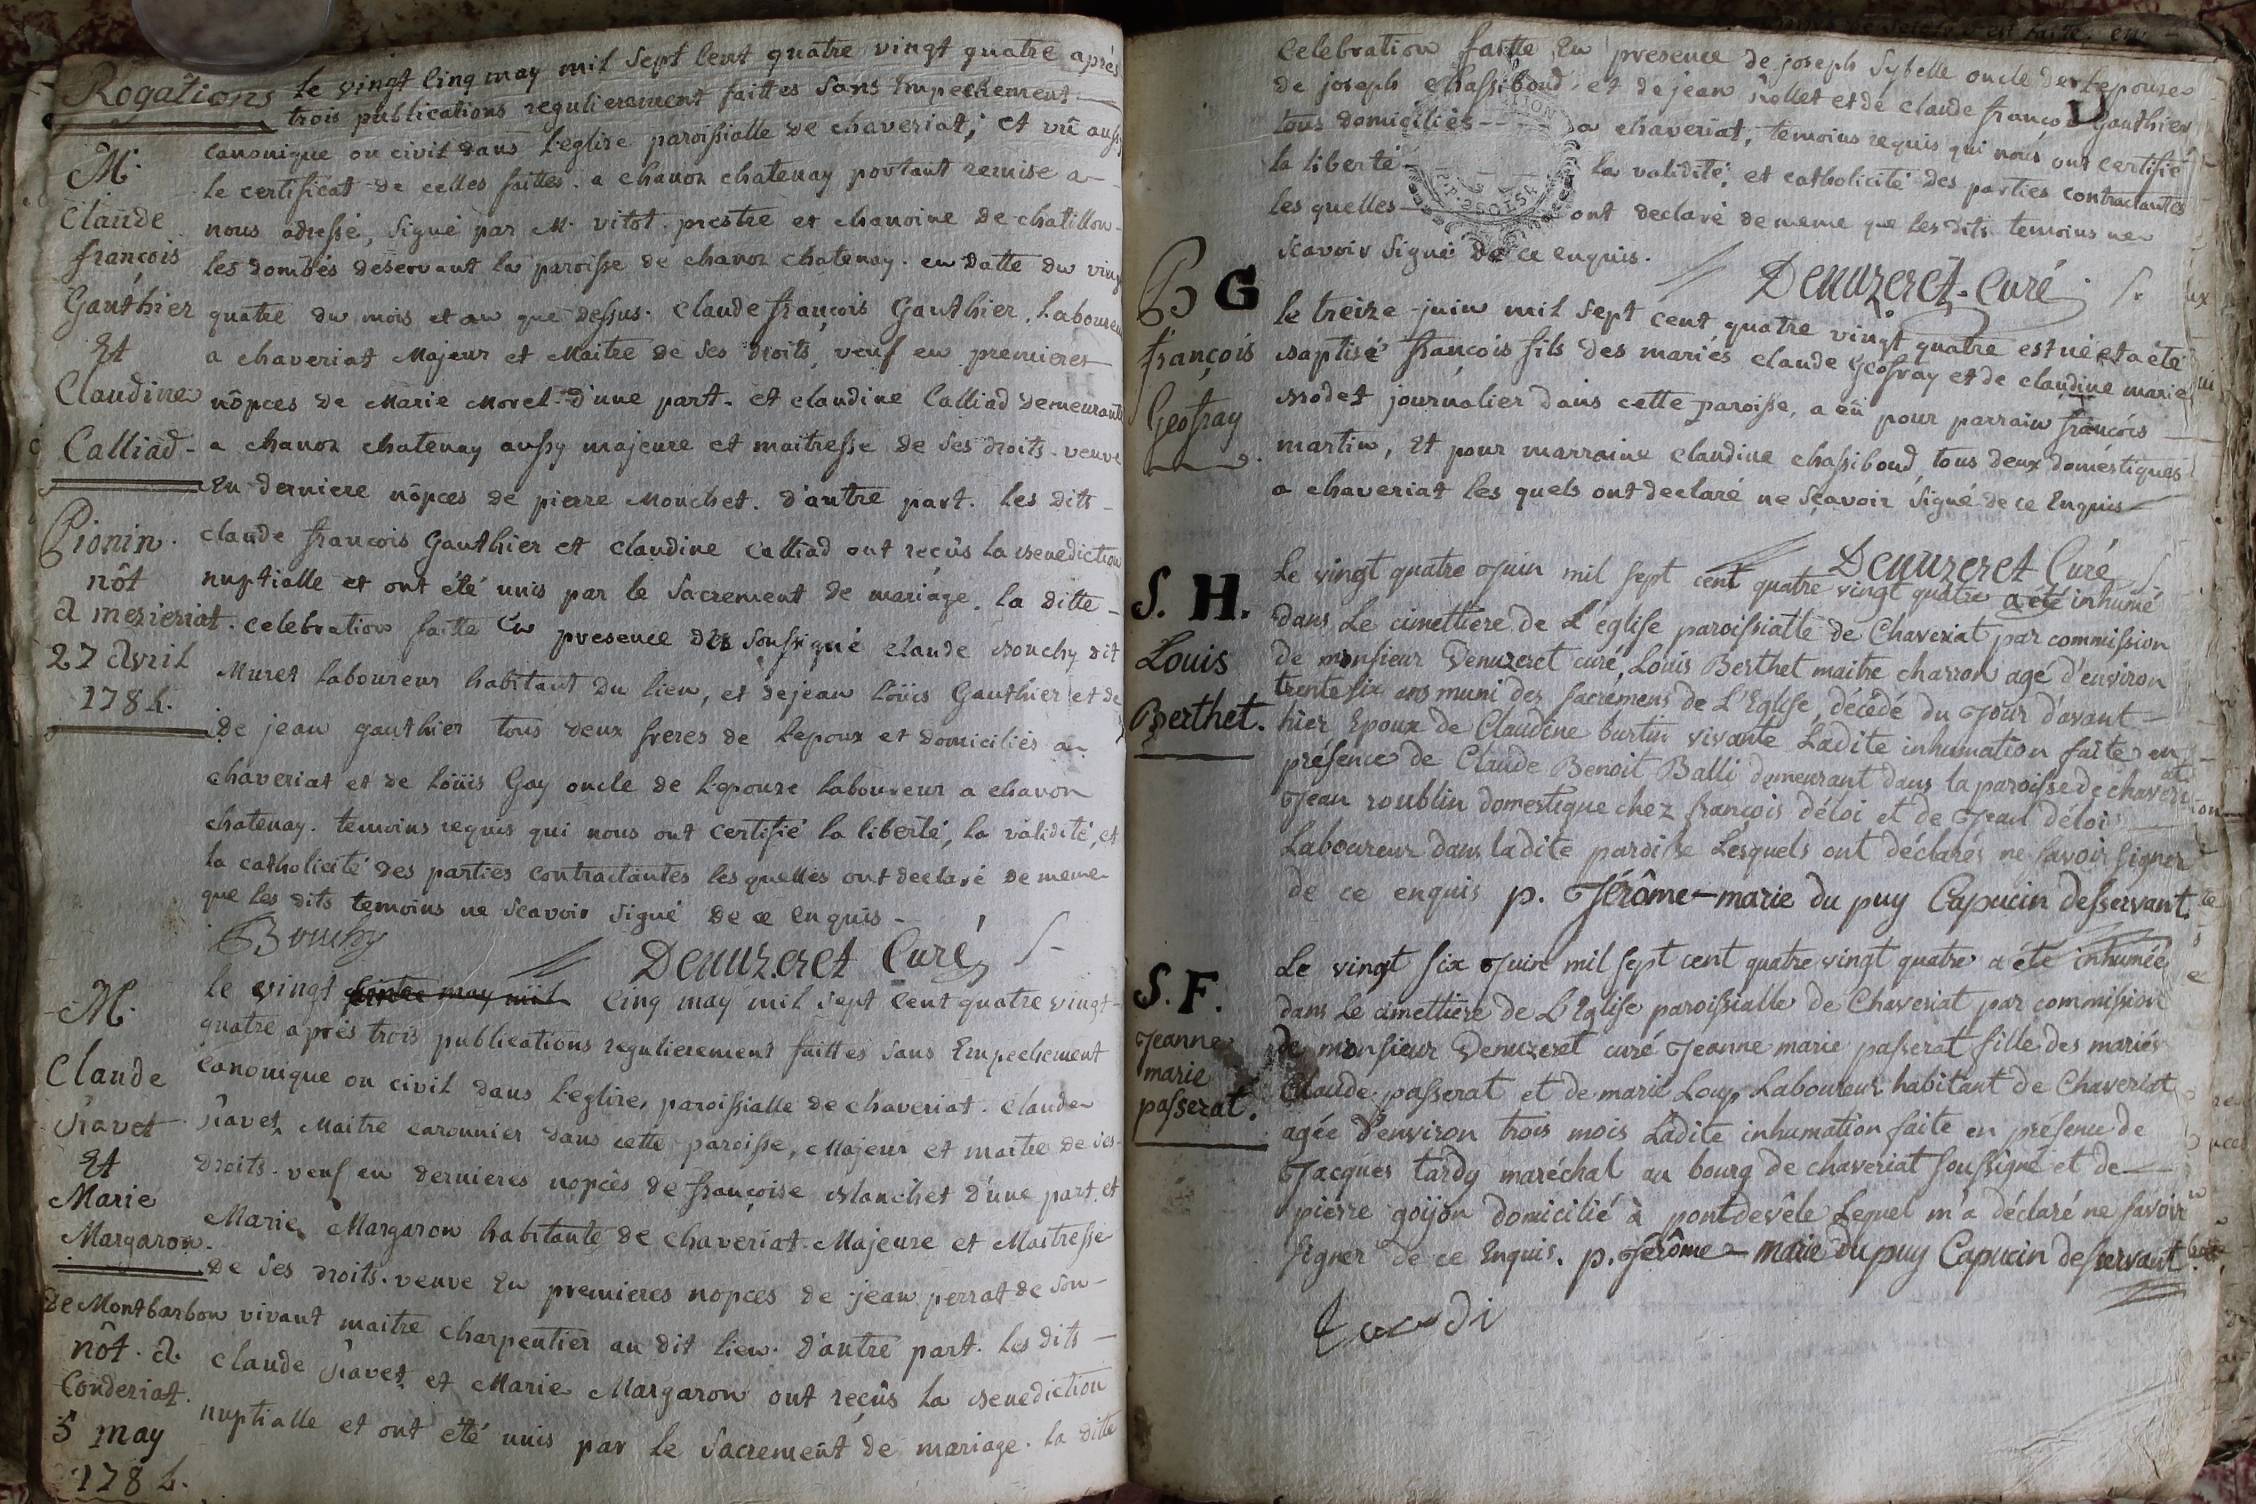 Rogations
le vingt cinq may mil sept cent quatre vingt quatre après
trois publications regulierement faittes sans Empechement
canonique ou civil dans l'eglise paroissialle de chaveriat; et vû aussy
le certificat de celles faittes a chanoz chatenay portant remise a
nous adressé, signé par M. vitot prestre et chanoine de chatillon
les dombes deservant la paroisse de chanoz chatenay. en datte du vingt
quatre du mois et an que dessus. Claude françois Gauthier, Laboureur
a chaveriat Majeur et Maitre de ses droits, veuf en premieres
nôpces de Marie Morel d'une part. et claudine Calliad demeurante
a chanoz chatenay aussy majeure et maitresse de ses droits. veuve
En derniere nôpces de pierre Monchet. d'autre part. les dits
claude françois Gauthier et claudine Calliad ont reçûs la Benediction
nuptialle et ont été unis par le Sacrement de mariage. la ditte
celebration faitte en presence des soussigné claude Bouchy dit
Muret laboureur habitant du lieu, et de jean loüis Gauthier et de
de jean gauthier tous deux freres de l'epoux et domiciliés a
chaveriat et de loüis Gay oncle de l'epouse laboureur a chanon
chatenay. temoins requis qui nous ont certifié la liberté, la validité, et
la catholicité des parties contractantes les quelles ont declaré de meme
que les dits temoins ne scavoir signé de ce enquis
Bouchy
Denuzeret Curé
M.
Claude
françois
Gauthier
Et
Claudine
Calliad
Pionin
nôt
a mezieriat
27 Avril
1784.
le vingt cinq may mil sept cent quatre vingt
quatre après trois publications regulierement faittes sans Empechement
canonique ou civil dans l'eglise, paroissialle de chaveriat. Claude
Ravet, Maitre caronnier dans cette paroisse, Majeur et maitre de ses
droits. veuf en dernieres nopces de françoise Blanchet d'une part. et
Marie Margaron habitante de chaveriat. Majeure et Maitresse
de ses droits. veuve En premieres nopces de jean perrat de son
vivant maitre charpentier au dit lieu. d'autre part. les dits
claude Ravet et Marie Margaron ont reçûs la Benediction
nuptialle et ont été unis par le Sacrement de mariage. la ditte
M.
Claude
Ravet
Et
Marie
Margaron.
de Montbarbon
nôt. a
Conderiat.
5 may
1784.
celebration faitte En presence de joseph Sybelle oncle de l'epouse
de joseph chassiboud, et de jean Rollet et de claude françois Gauthier
tous domiciliés a chaveriat, temoins requis qui nous ont certifié
la liberté la validité, et catholicité des parties contractantes
les quelles ont declaré de meme que les dits temoins ne
scavoir signé de ce enquis.
Denuzeret. Curé
B G
françois
Geofray
le treize juin mil sept cent quatre vingt quatre est né et a été
Baptisé françois fils des mariés claude Geofray et de claudine marie
Brodet journalier dans cette paroisse, a eû pour parrain françois
martin, Et pour marraine claudine chassiboud tous deux domestiques
a chaveriat les quels ont declaré ne sçavoir signé de ce Enquis
Denuzeret Curé
S. H.
Louis
Berthet.
Le vingt quatre Juin mil sept cent quatre vingt quatre a été inhumé
dans Le cimettiere de L'église paroissialle de Chaveriat par commission
de monsieur Denuzeret curé, Louis Berthet maitre charron agé d'environ
trente six ans muni des sacremens de L'Eglise, décédé du Jour d'avant
hier Epoux de Claudine burtin vivante Ladite inhumation faite en
présence de Claude Benoit Balli demeurant dans la paroisse de chaveriat
Jean roublin domestique chez françois déloi et de Jean déloi
Laboureur dans ladite paroisse Lesquels ont déclarés ne savoir signer
de ce enquis p. Jérôme-marie du puy Capucin desservant.
S. F.
Jeanne
marie
passerat.
Le vingt six Juin mil sept cent quatre vingt quatre a été inhumée
dans Le cimettiere de L'Eglise paroissialle de Chaveriat par commission
de monsieur Denuzeret curé Jeanne marie passerat fille des mariés
Claude passerat et de marie Loup Laboureur habitant de Chaveriat
agée d'environ trois mois Ladite inhumation faite en présence de
Jacques tardy maréchal au bourg de chaveriat soussigné et de
pierre goijon domicilié à pontdevêle Lequel m'a déclaré ne savoir
signer de ce Enquis. p. Jérôme-marie du puy Capucin desservant.